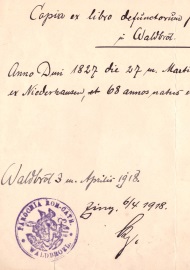 Copia ex libro defunctorum
in Waldbröl.
Anno Dni 1827 die 27 m. Martii
ex Niederhausen, et 68 annos natus
Waldbröl 3 m. Aprilis 1918.
Eing. 6/4 1918.
PAROCHIA ROM. CATH.
WALDBROEL